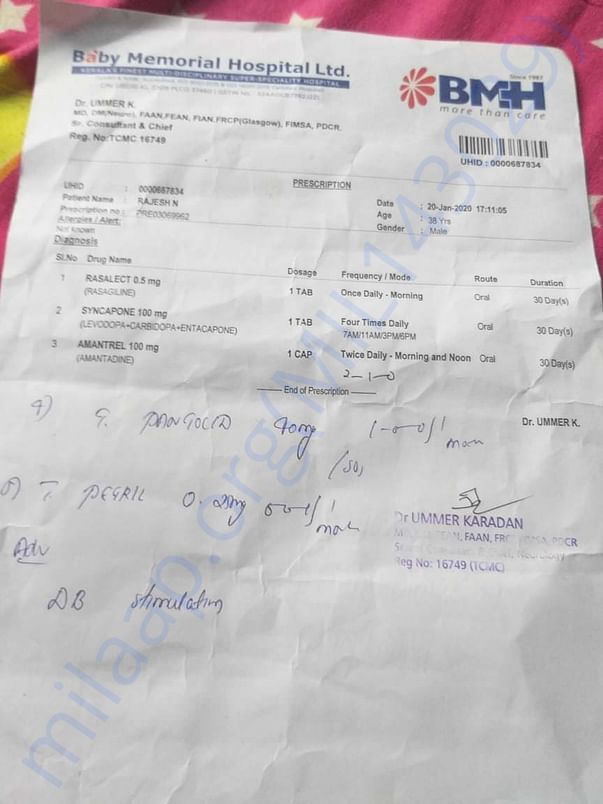 Baby Memorial Hospital Ltd.
KERALA'S FINEST MULTI-DISCIPLINARY SUPER-SPECIALITY HOSPITAL
Since 1987
BMH
more than care
Dr. UMMER K.
MD, DM(Neuro), FAAN,FEAN, FIAN,FRCP(Glasgow), FIMSA, PDCR,
Sr. Consultant & Chief
Reg. No:TCMC 16749
UHID : 0000687834
PRESCRIPTION
UHID : 0000687834
Patient Name : RAJESH N
Prescription no : PRE03069962
Allergies / Alert:
Not known
Date : 20-Jan-2020 17:11:05
Age : 38 Yrs
Gender : Male
Diagnosis
Sl.No Drug Name Dosage Frequency / Mode Route Duration
1 RASALECT 0.5 mg 1 TAB Once Daily - Morning Oral 30 Day(s)
(RASAGILINE)
2 SYNCAPONE 100 mg 1 TAB Four Times Daily Oral 30 Day(s)
(LEVODOPA+CARBIDOPA+ENTACAPONE) 7AM/11AM/3PM/6PM
3 AMANTREL 100 mg 1 CAP Twice Daily - Morning and Noon Oral 30 Day(s)
(AMANTADINE)
2-1-0
End of Prescription
Dr. UMMER K.
4) 40mg 1-0-0
5) T. 0.25mg 0-0-1
Dr UMMER KARADAN
FAAN, PDCR
Reg No: 16749 (TCMC)
Adv
DB stimulating
milaap.org(MIL143029)